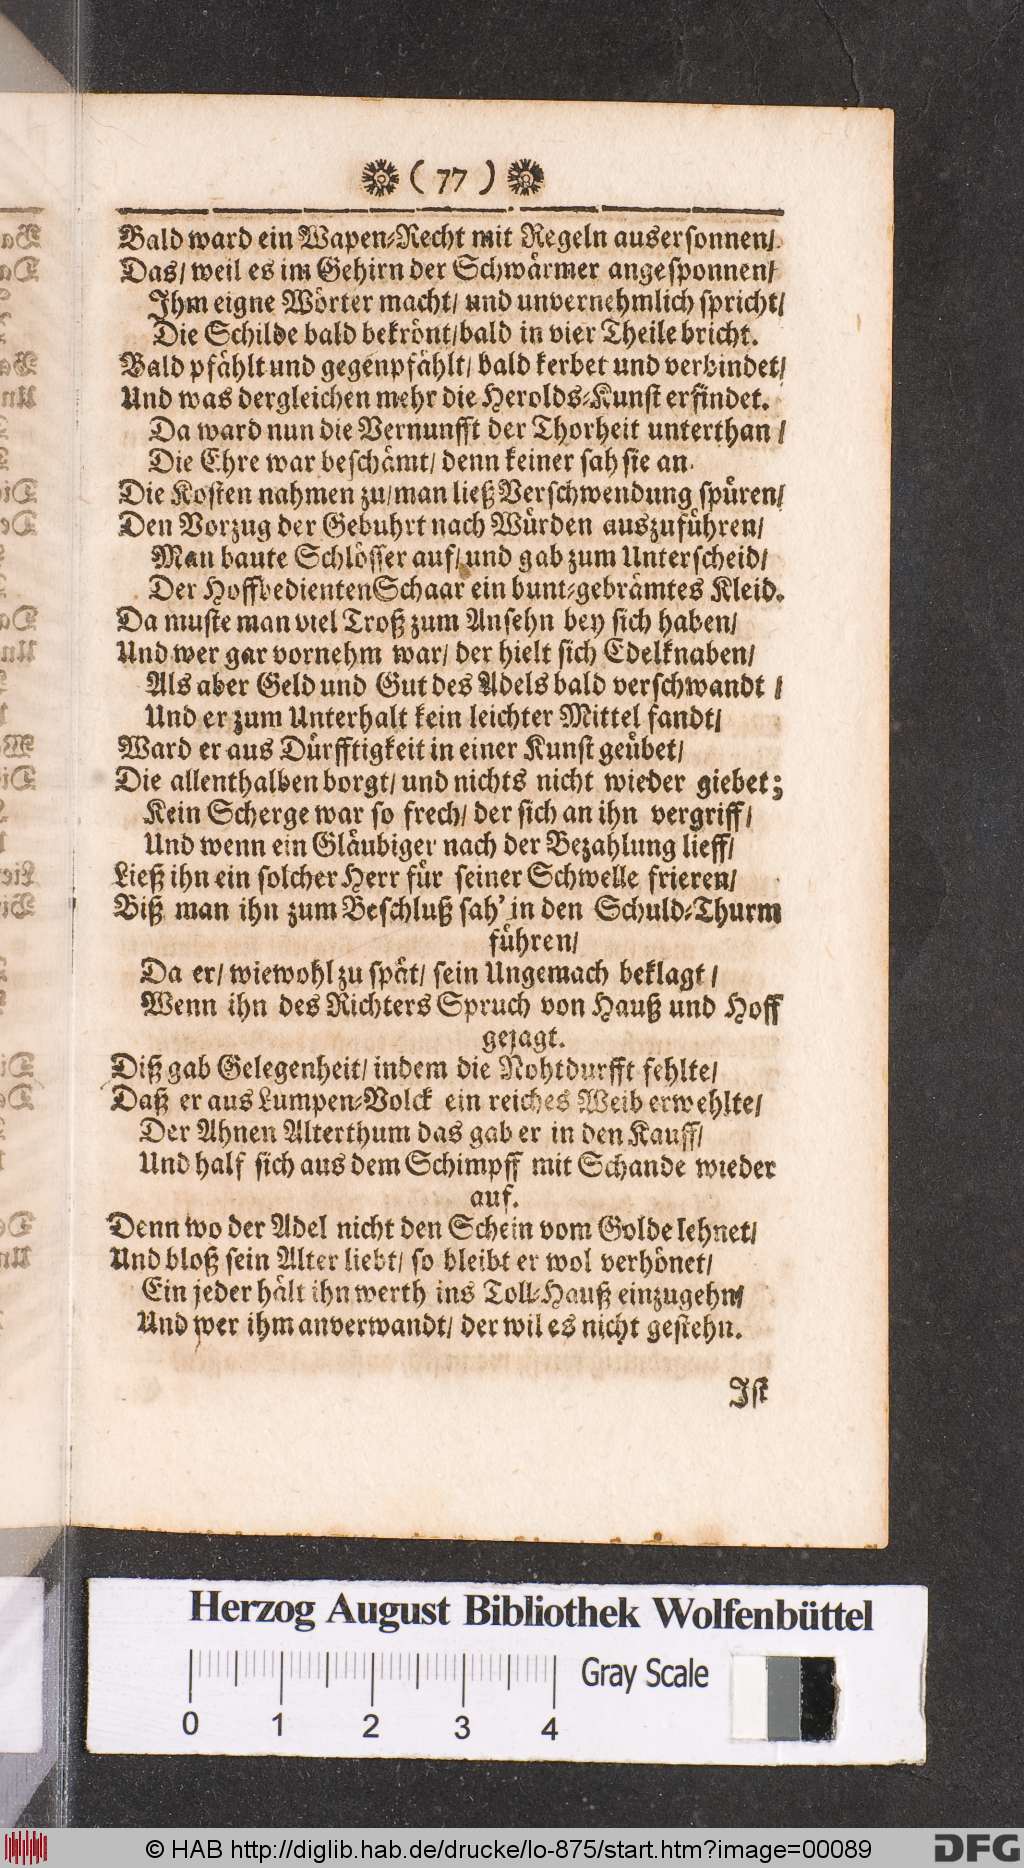 ( 77 )
Bald ward ein Wapen-Recht mit Regeln ausersonnen/
Das/ weil es im Gehirn der Schwärmer angesponnen/
Ihm eigne Wörter macht/ und unvernehmlich spricht/
Die Schilde bald bekrönt/bald in vier Theile bricht.
Bald pfählt und gegenpfählt/ bald kerbet und verbindet/
Und was dergleichen mehr die Herolds-Kunst erfindet.
Da ward nun die Vernunfft der Thorheit unterthan/
Die Ehre war beschämt/ denn keiner sah sie an.
Die Kosten nahmen zu/man ließ Verschwendung spüren/
Den Vorzug der Gebuhrt nach Würden auszuführen/
Man baute Schlösser auf/ und gab zum Unterscheid/
Der Hoffbedienten Schaar ein bunt-gebrämtes Kleid.
Da muste man viel Troß zum Ansehn bey sich haben/
Und wer gar vornehm war/ der hielt sich Edelknaben/
Als aber Geld und Gut des Adels bald verschwandt/
Und er zum Unterhalt kein leichter Mittel fandt/
Ward er aus Dürfftigkeit in einer Kunst geübet/
Die allenthalben borgt/ und nichts nicht wieder giebet;
Kein Scherge war so frech/ der sich an ihn vergriff/
Und wenn ein Gläubiger nach der Bezahlung lieff/
Ließ ihn ein solcher Herr für seiner Schwelle frieren/
Biß man ihn zum Beschluß sah' in den Schuld-Thurm
führen/
Da er/ wiewohl zu spät/ sein Ungemach beklagt/
Wenn ihn des Richters Spruch von Hauß und Hoff
gejagt.
Diß gab Gelegenheit/ indem die Nohtdurfft fehlte/
Daß er aus Lumpen-Volck ein reiches Weib erwehlte/
Der Ahnen Alterthum das gab er in den Kauff/
Und half sich aus dem Schimpff mit Schande wieder
auf.
Denn wo der Adel nicht den Schein vom Golde lehnet/
Und bloß sein Alter liebt/ so bleibt er wol verhönet/
Ein jeder hält ihn werth ins Toll-Hauß einzugehn/
Und wer ihm anverwandt/ der wil es nicht gestehn.
Ist
Herzog August Bibliothek Wolfenbüttel
Gray Scale
0 1 2 3 4
© HAB http://diglib.hab.de/drucke/lo-875/start.htm?image=00089
DFG